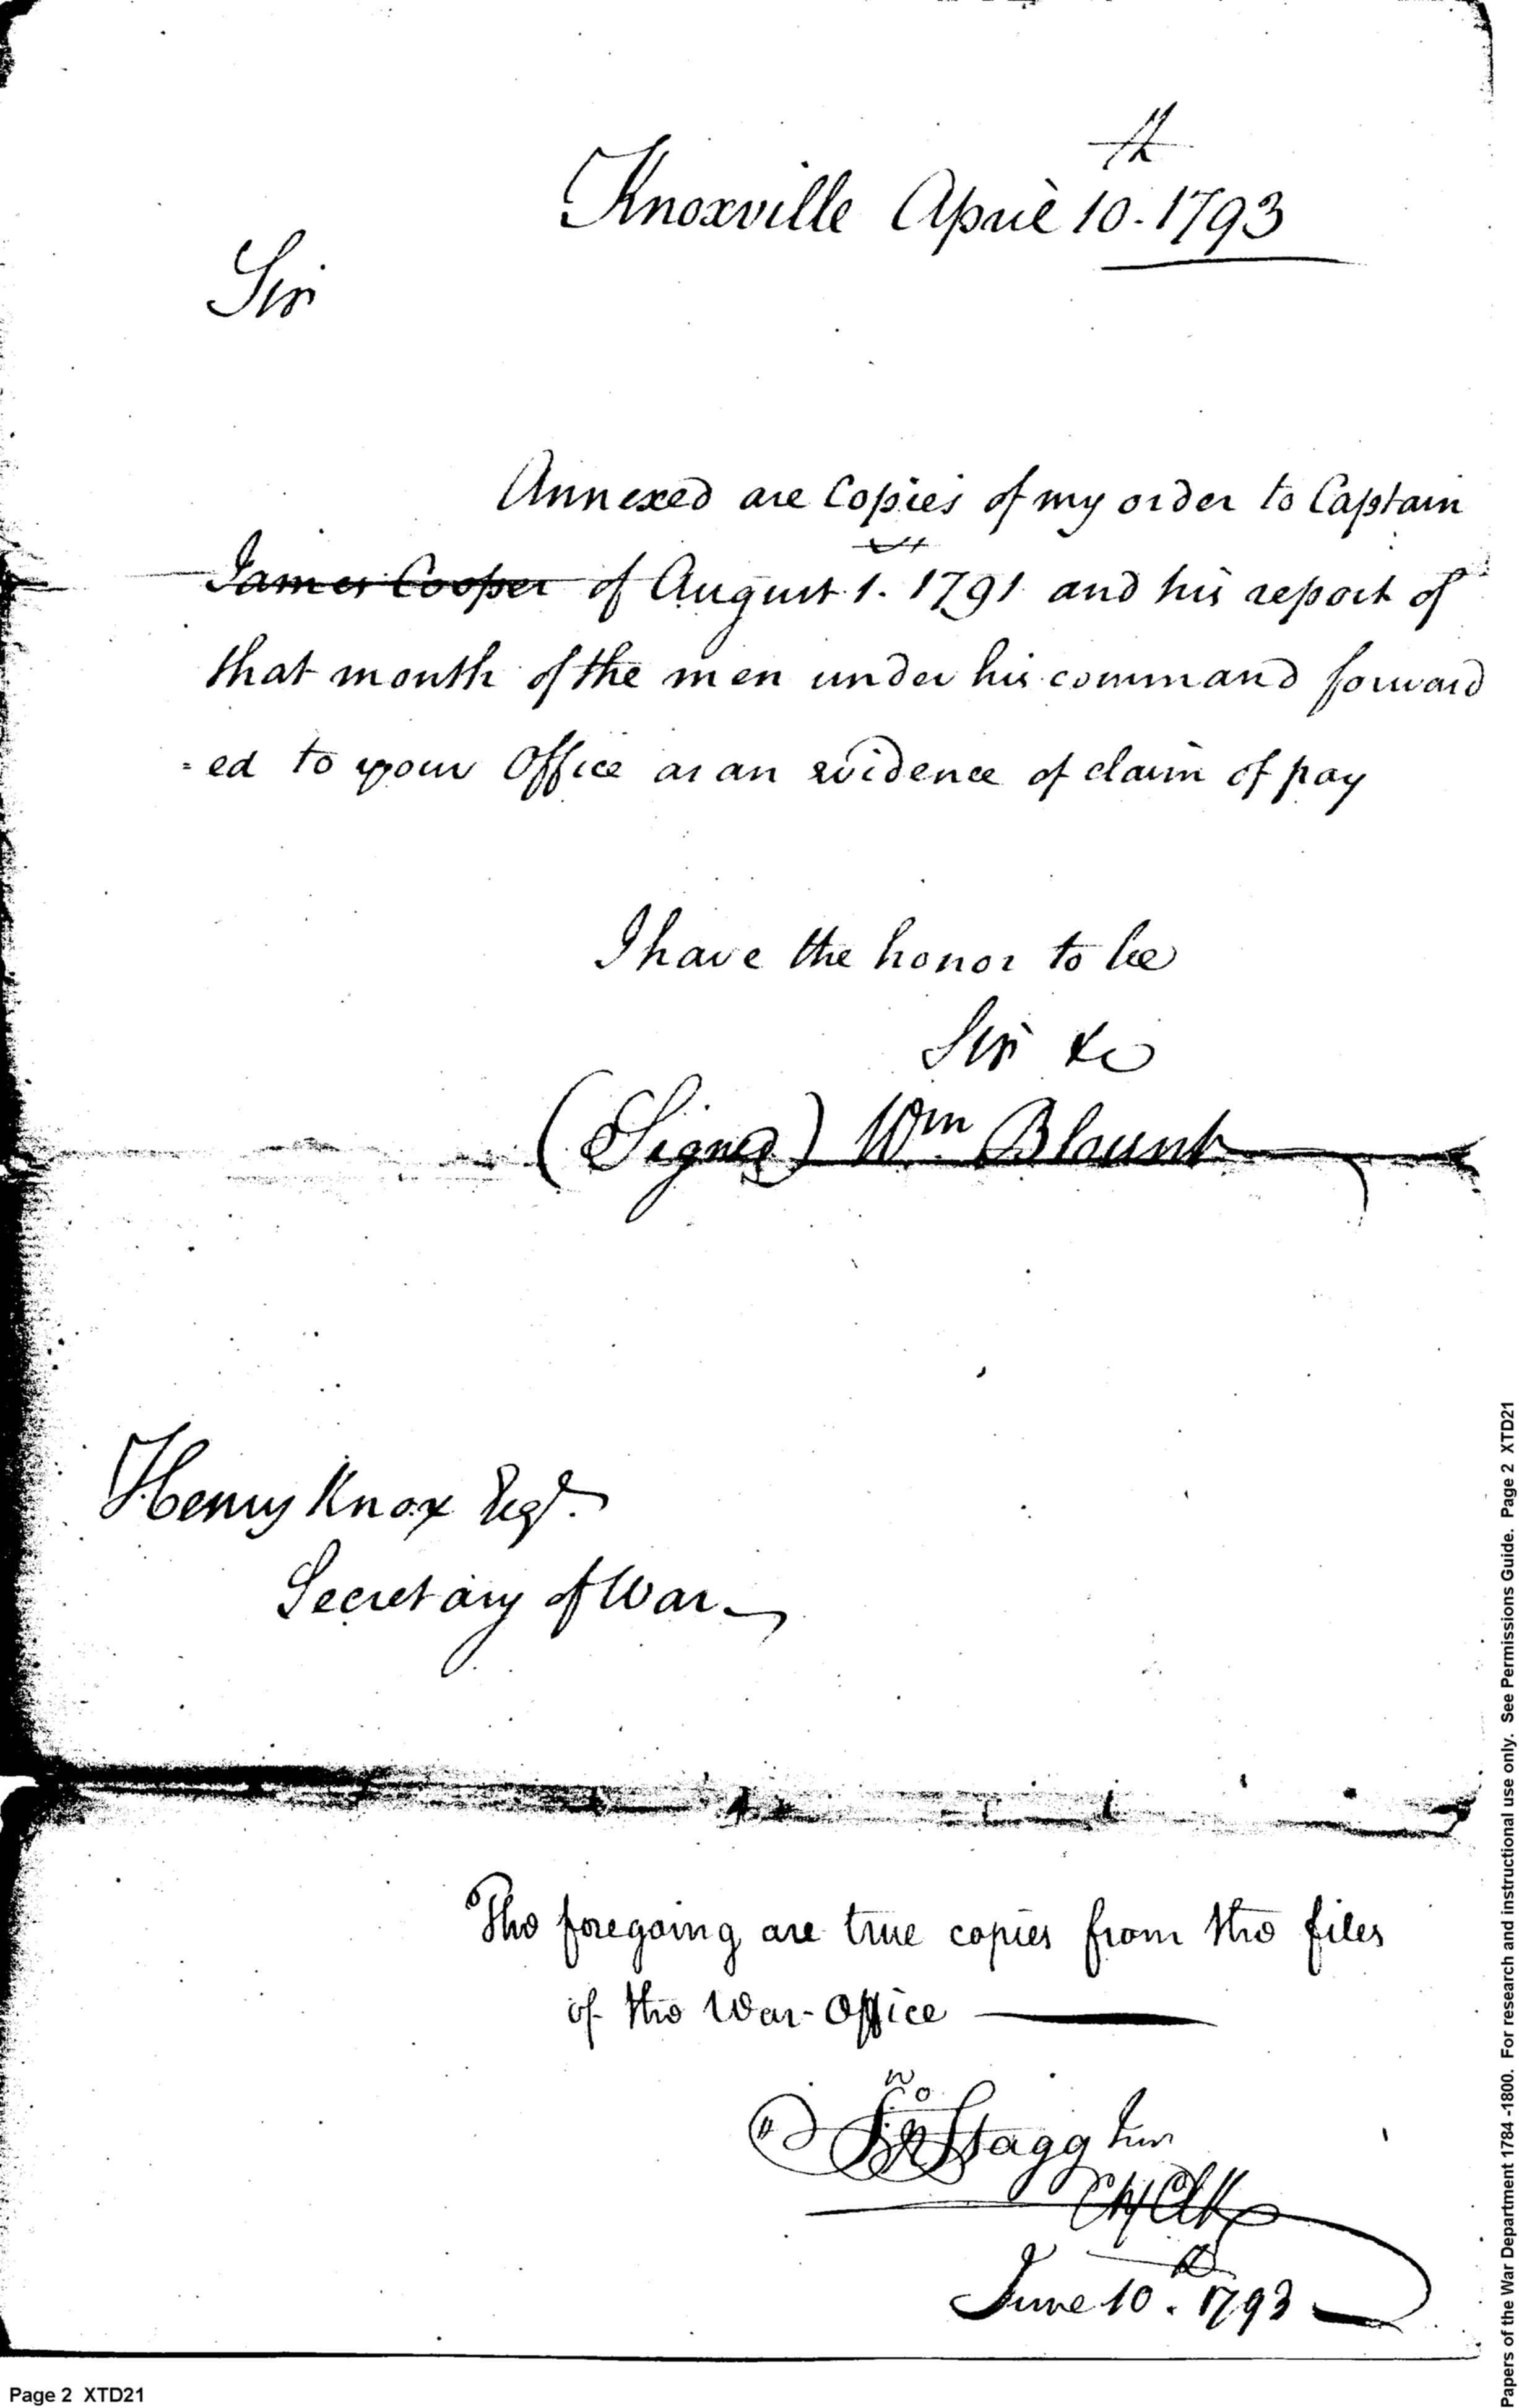 Knoxville April 10th. 1793
Sir
Annexed are Copies of my order to Captain
James Cooper of August 1st. 1791 and his report of
that month of the men under his command forward
=ed to your Office as an evidence of claim of pay
I have the honor to be
Sir &c
(Signed) Wm Blount
Henry Knox Esqr.
Secretary of War
The foregoing are true copies from the files
of the War-Office
Jno Stagg Junr
Ch Clk
June 10th. 1793
Papers of the War Department 1784 -1800. For research and instructional use only. See Permissions Guide. Page 2 XTD21
Page 2 XTD21